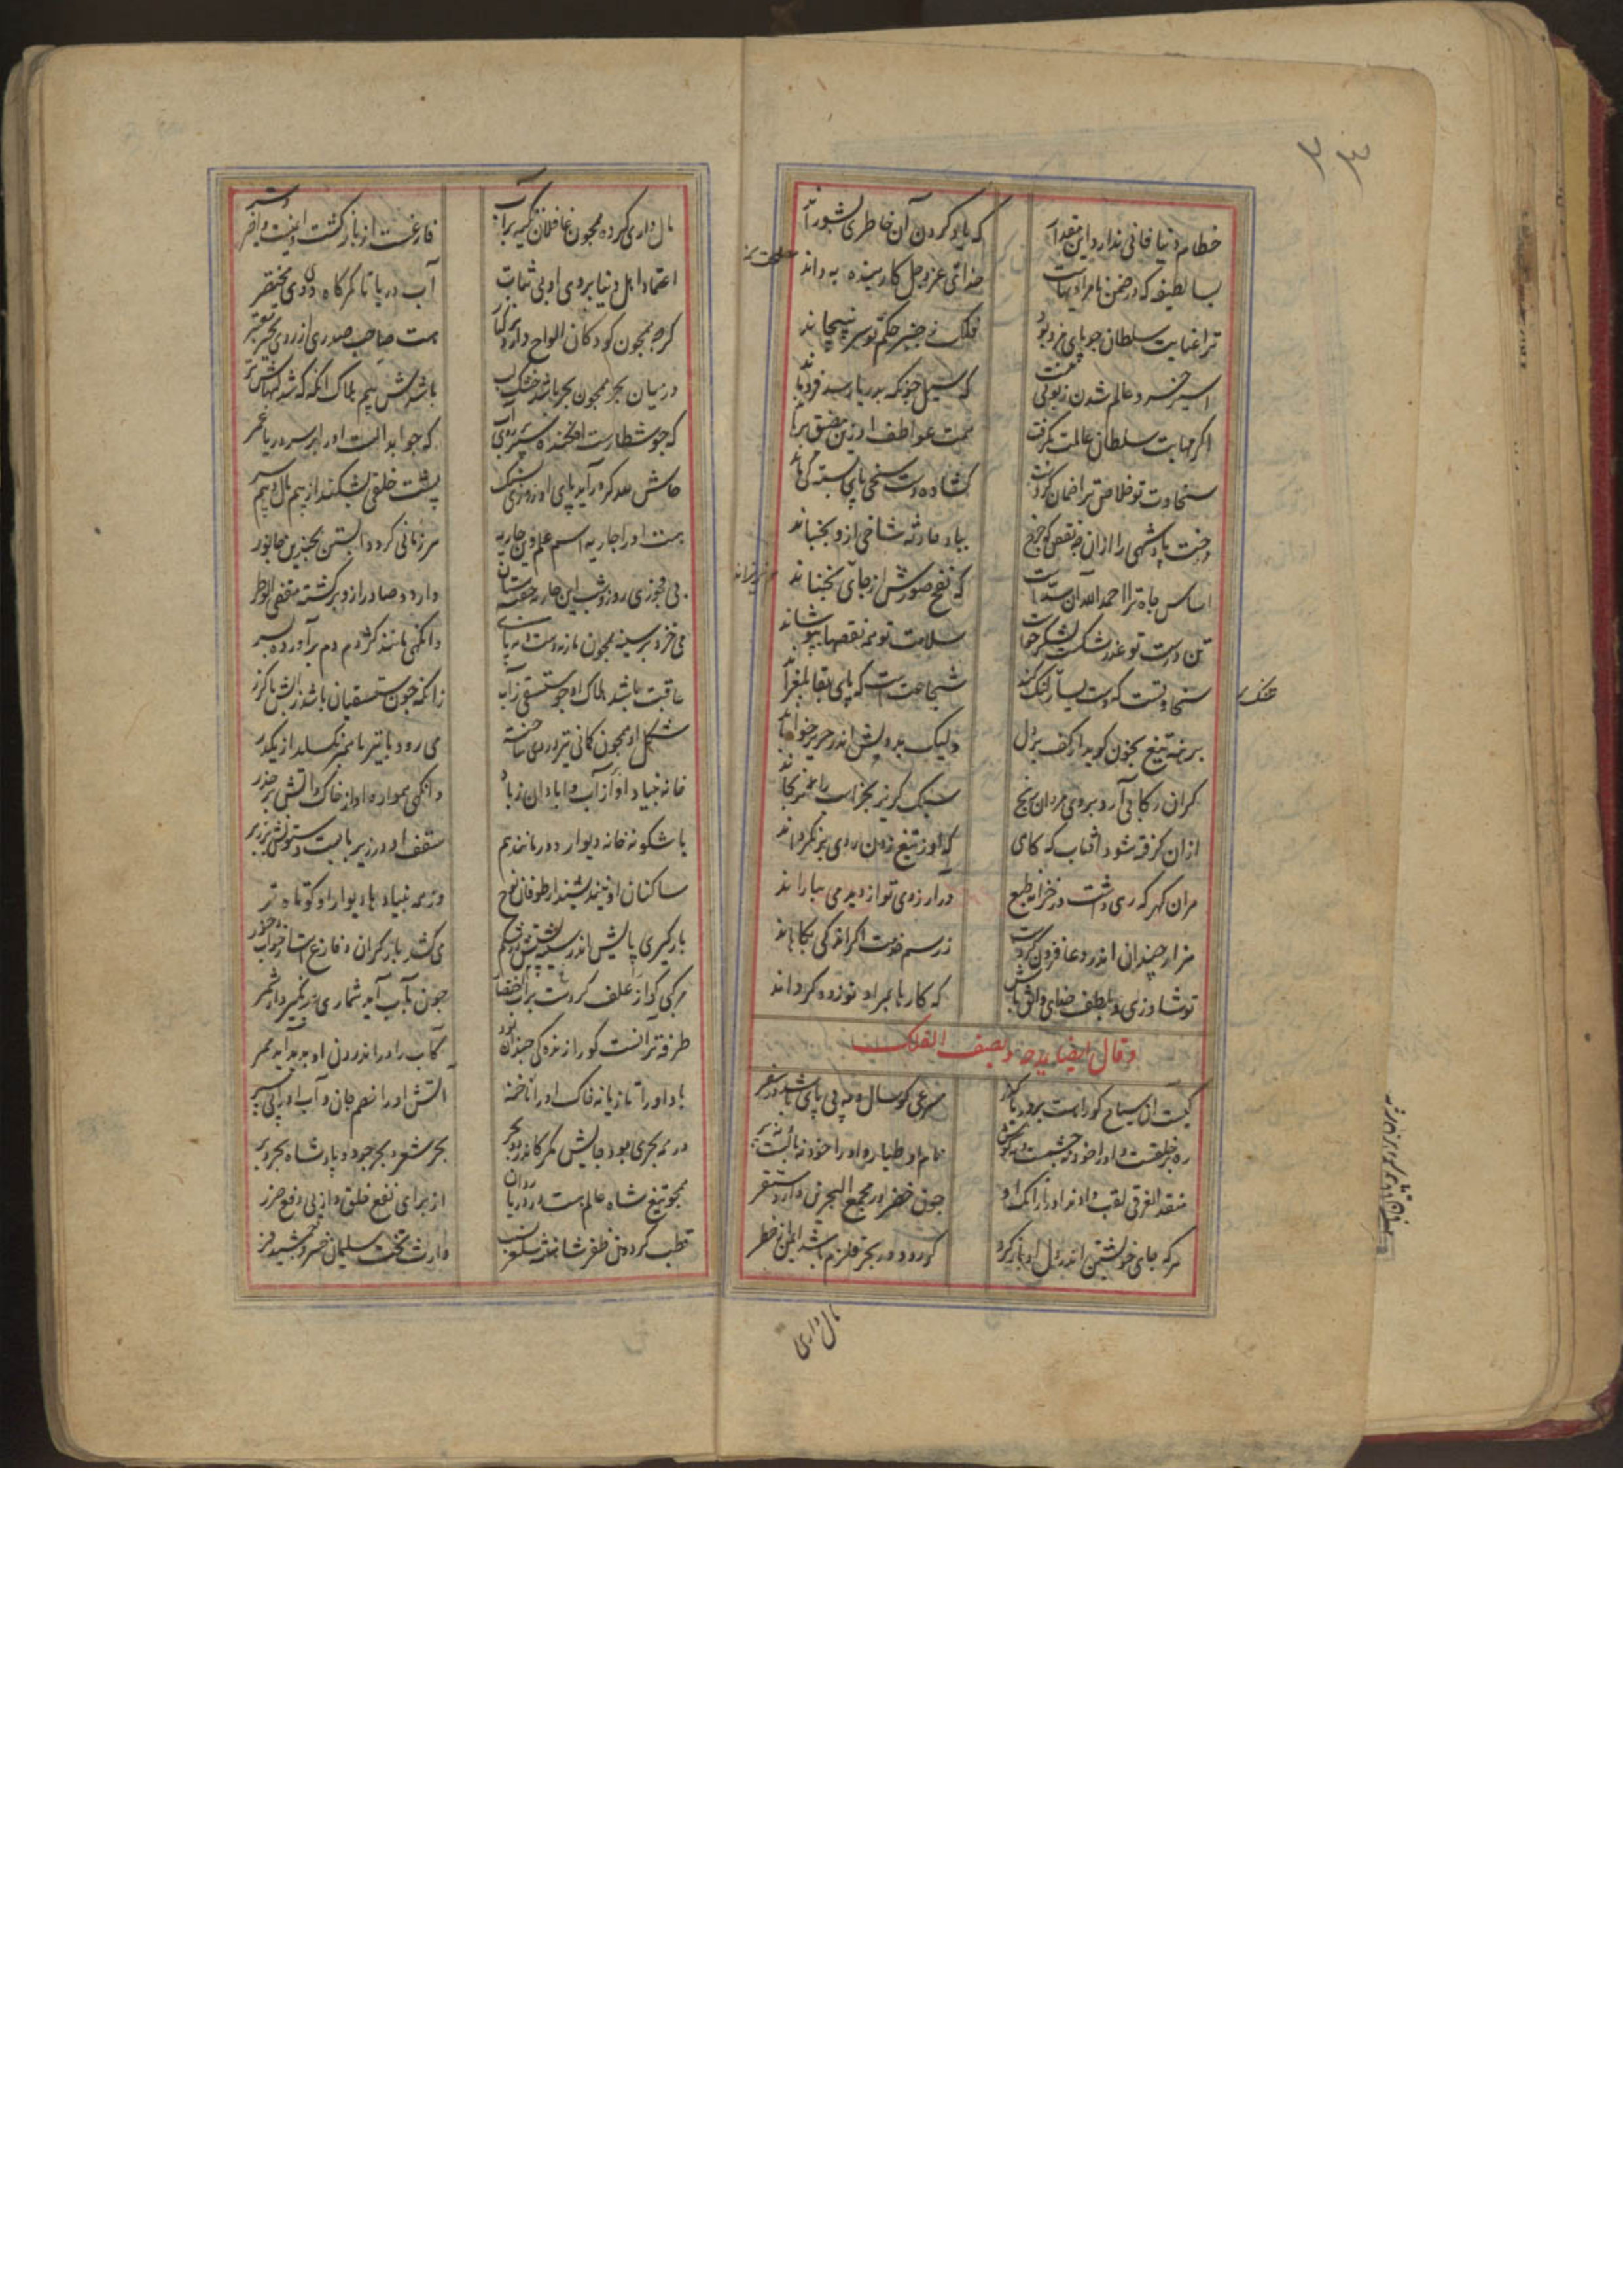 خطام دنیا فانی ندارد این مقدار که یاد کردن آن خاطری بشوراند
بسا لطیفه که در ضمن نامرادیهاست خدای عز و جل کار بنده به داند
ترا عنایت سلطان چو پای مرد بود فلک ز چنبر حکم تو سر نپیچاند
اسیر خسرو عالم شدن زبونی نیست که سیل چونکه بدریا رسد فرو ماند
اگر مهابت سلطان عالمت بگرفت همت عواطف او زین مضیق برهاند
سخاوت تو خلاصت پر ضمان کردست گشاده دست سخی پای بسته کی ماند
درخت پادشهی را ازان چه نقص که چرخ بباد حادثه شاخی ازو بجنباند
اساس جاه ترا احمد الله آن است که نفخ صورش از جای نجنباند
تن درست تو عذر شکست لشکر خواست سلامت تو همه نقصها بپوشاند
سخاوتست که دست یسار تنگ کند شجاعت است که پای بقا بلغزاند
برهنه تیغ بخون گوید از کف بزل ولیک بدرویش اندر حریر خواباند
گران رکابی آرد بروی مردان رنج سبک گریز بجز است را نمی نجاند
ازان گرفته شود آفتاب که گاهی که او ز تیغ زدن روی بر نگرداند
مران گهر که ری داشت در خزاین طبع در ارزوی تو از دیده می باراند
هزار چندانی اندر دعا فزون کردست ز رسم خدمت اگر اندکی بکاهاند
تو شاد زی و بلطف خدای واثق باش که کارها بمراد تو زود گرداند
وقال ایضا یمدحه و یصف الفلک
کیست آن سیاح کو راست بر دریا گذر مسرعی کو سال و مه بی پای باشد در سفر
ره بر خلقست و او را خود نه چشمست و نه گوش نام او طیاره و او را خود نه بالست نه پر
منقذ الغرقی لقب دادند او را زانک او چون خضر در مجمع البحرین دارد مستقر
هر که جای خویشتن اندر دل او باز کرد گو رود در بحر قلزم باشد ایمن از خطر
مال داری
مال داری کرده همچون غافلان تکیه بر آب فارغست از بازگشت و ایمنست از خیر و شر
اعتماد اهل دنیا بروی او بی ثبات آب دریا تا کمرگاه وی مختصر
گرچه همچون کودکان الواح دارد در کنار هست صاحب صدری از روی بحر معتبر
در میان بحر همچون بحر باشد خشک لب باشدش بیم هلاک آنگه که شد لبهاش تر
که چو شطارست افکنده سپر بر روی آب که چو ابدالست او را بر سر دریا ممر
حاش لله گر در آید پای او در روی سنگ پشت خلقی بشکند از بیم مال و بیم سر
هست او را جاریه اسم علم وین جاریه هر زمانی گردد آبستن بچندین جانور
بی فجوری روز و شب این جاریه خفته ستان وارد و صادر ازو برگشته مقضی الوطر
می خزد بر سینه همچون مار نه دست و نه پای وانگهی مانند کژدم دم برآورده بسر
عاقبت باشد هلاک او چو مستسقی ز آب زانکه چون مستسقیان باشد ز آبش ناگزر
شکل او همچون کمانی تیر در وی ساخته می رود با تیر تا هم نگسلد از یکدگر
خانه بنیاد او از آب و آبادان ز باد وانگهی همواره او از خاک و آتش بر حذر
باشگونه خانه دیوار و در مانند هم سقف او در زیر بالیست و ستونش بر زبر
ساکنان او نیندیشند از طوفان نوح ورچه بنیادها دیوار او کوتاه تر
بارگیری پالش اندر پشت پشتش در شکم می کشد بار گران و فارغ است از خواب و خور
مرکبی کو از علف کردست بر آب اختصار چون بآب آید شماری بر نگیرد از شمر
طرفه تر آنست کو را زندگی چندان بود کآب را در اندرون او بدید آید ممر
باد او را تازیانه خاک او را ناخنه آتش او را خصم جان و آب او را پی سپر
در همه بحری بود جایش مگر کاندر دو بحر بحر شعر و بحر جود پادشاه بحر و بر
همچو تیغ شاه عالم هست در دریا روان از برای نفع خلق و از پی دفع ضرر
قطب گردون ظفر شاهنشه سلغر نسب وارث تخت سلیمان خسرو جمشید فر